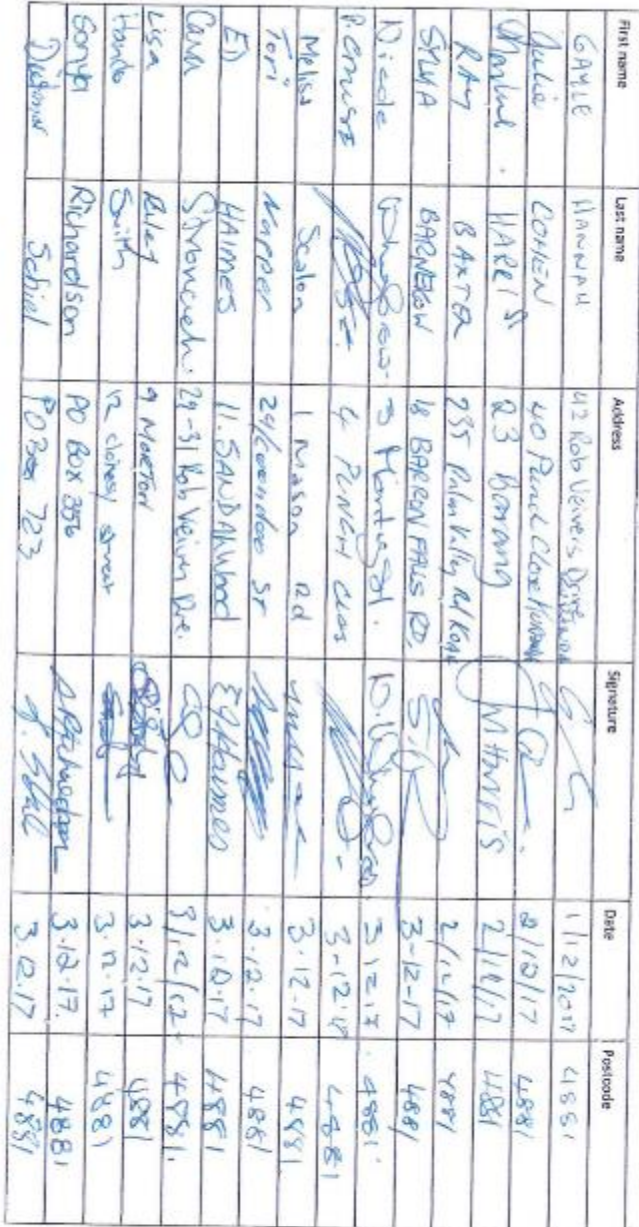 First name Last name Address Signature Date Postcode
GAYLE HANNAH 42 Rob Veivers Drive 1/12/2017 4881
Julie COHEN 40 Punch Close 2/12/17 4881
HARRIS 23 Barang M Harris 2/12/17 4881
RAY BAXTER 235 Palm Valley Rd 2/12/17 4881
SYLVIA BARNEKOW 18 BARRON FALLS RD. 3-12-17 4881
Nicole 3 3.12.17 4881
4 PUNCH CLOS 3-12-17 4881
Melissa Scalon 1 Mason Rd 3-12-17 4881
Tori Napper St 3.12.17 4881
ED HAIMES 11. SANDALWOOD Haimes 3.12.17 4881
Cam 29-31 Rob Veivers Dve. 3/12/12 4881.
Lisa Riley 9 MORTON 3.12.17 4881
Smith 12 street 3.12.17 4881
Sonya Richardson PO BOX 356 S Richardson 3.12.17. 4881
Dietmar Schiel PO Box 723 3.12.17 4881